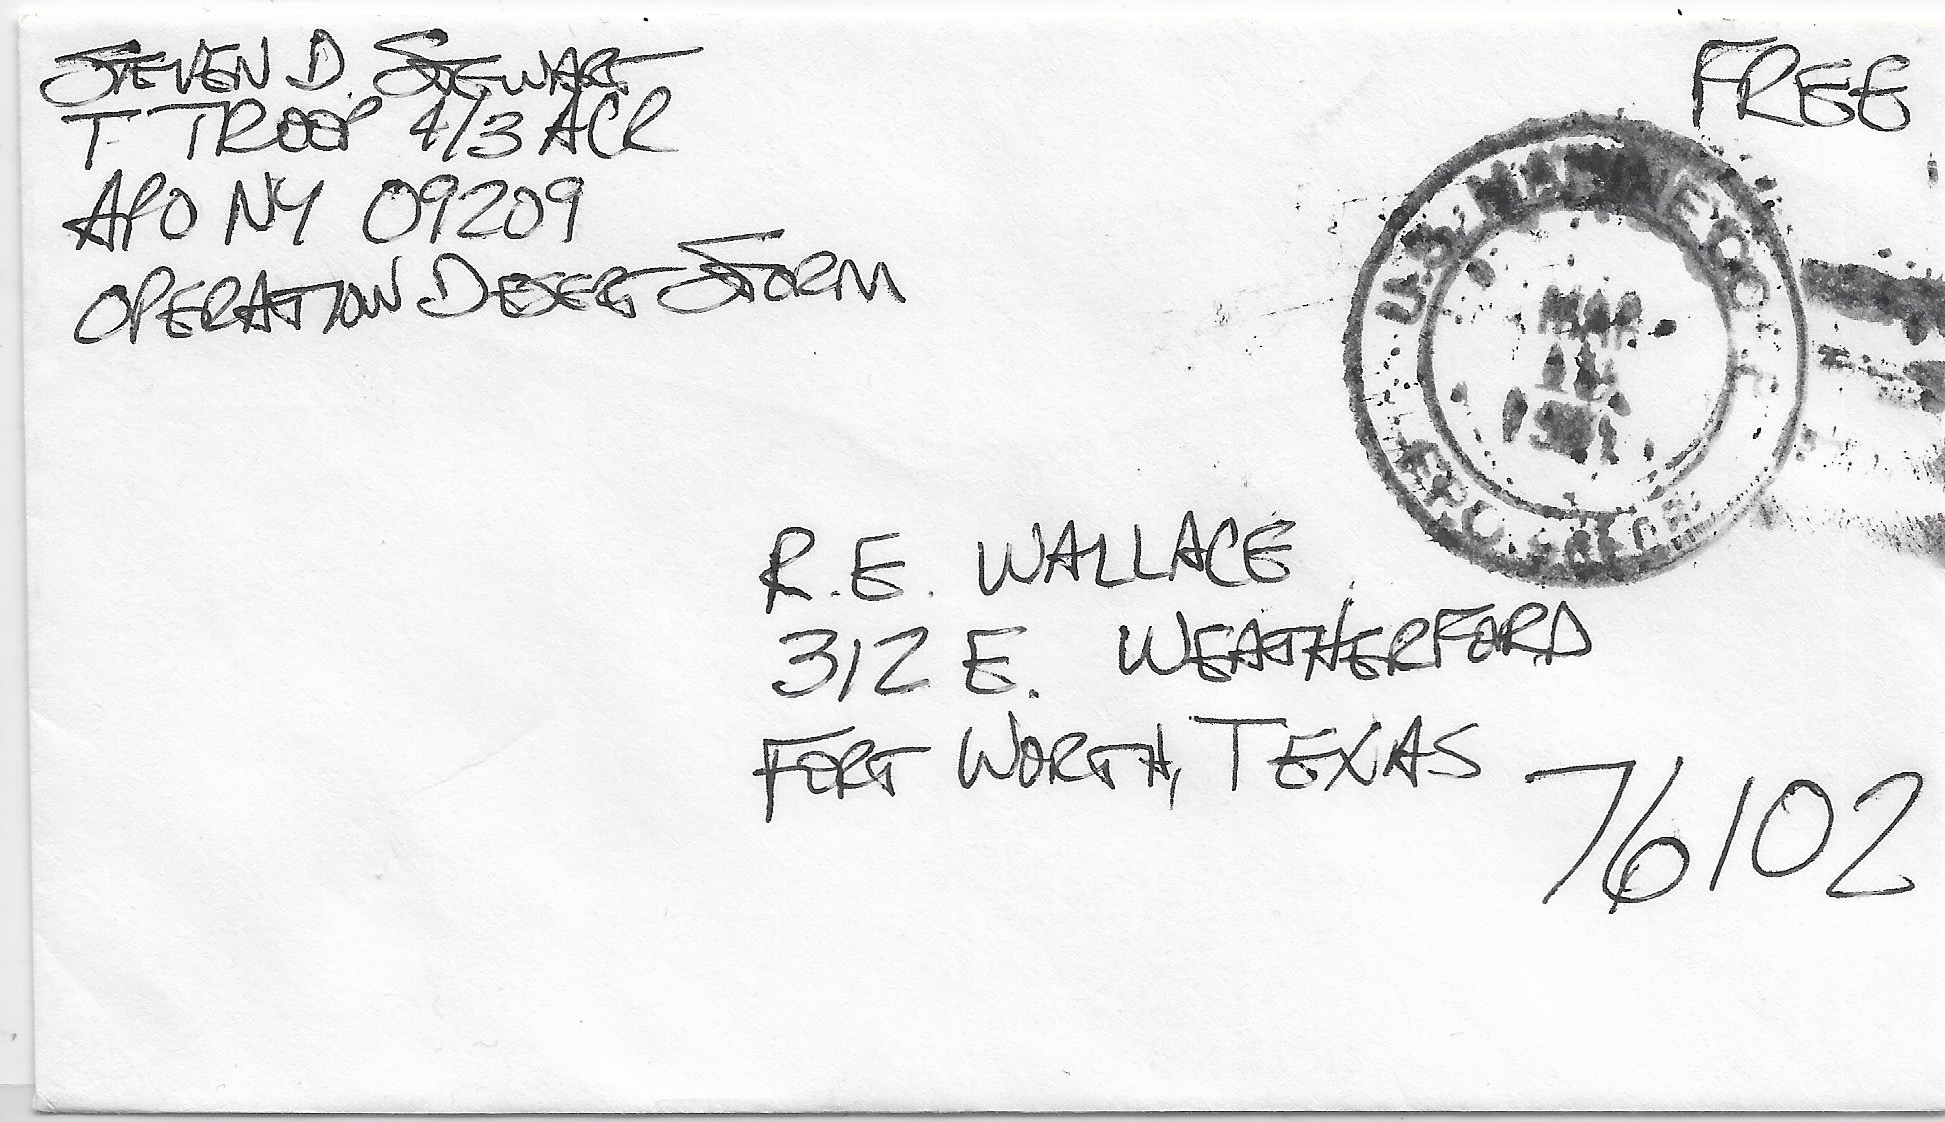 STEVEN D. STEWART
T- TROOP 4/3 ACR
APO NY 09209
OPERATION DESERT STORM
FREE
U.S. MARINE CORPS
MAR
R.E. WALLACE
312 E. WEATHERFORD
FORT WORTH, TEXAS
76102